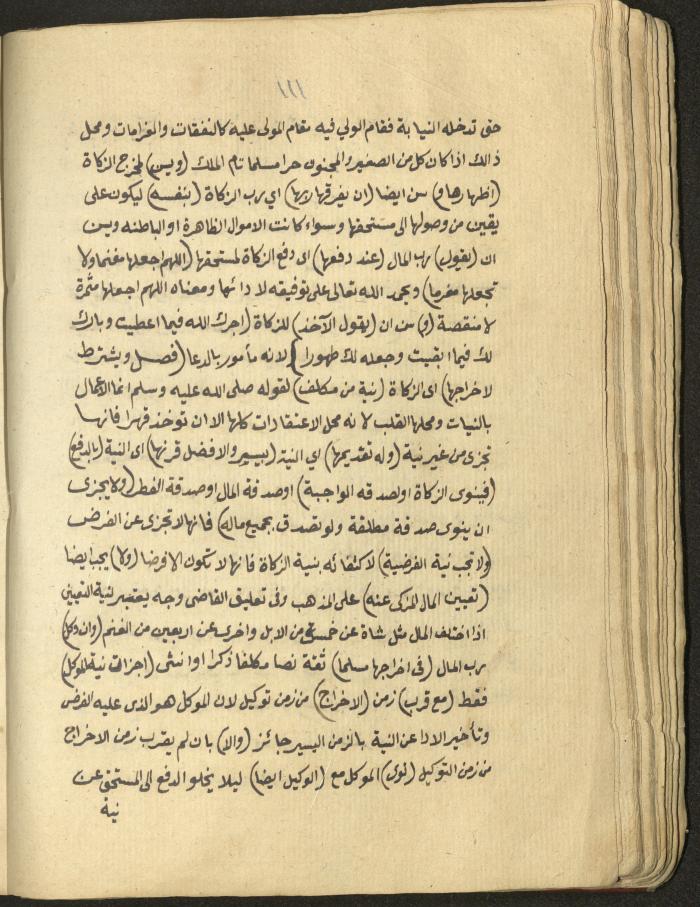 ١١١
حق تدخله النيابة فقام الولي فيه مقام المولى عليه كالنفقات والغرامات ومحل
ذالك اذا كان كل من الصغير والمجنون حرا مسلما تام الملك (ويسن) لمخرج الزكاة
(اظهارها و) سن ايضا (ان يفرقها ربها) اي رب الزكاة (بنفسه) ليكون على
يقين من وصولها الى مستحقها وسواء كانت الاموال الظاهرة او الباطنه ويسن
ان (يقول) رب المال (عند دفعها) اى دفع الزكاة لمستحقها (اللهم اجعلها مغنما ولا
تجعلها مغرما) ويحمد الله تعالى على توفيقه لادائها ومعناه اللهم اجعلها مثمرة
لا منقصة (و) سن ان (يقول الآخذ) للزكاة (اجرك الله فيما اعطيت وبارك
لك فيما ابقيت وجعله لك طهورا) لانه مأمور بالدعا (فصل ويشترط
لاخراجها) اى الزكاة (نية من مكلف) لقوله صلى الله عليه وسلم انما الاعمال
بالنيات ومحلها القلب لانه محل الاعتقادات كلها الا ان توخذ قهرا فانها
تجزى من غير نية (وله تقديمها) اي النية (بيسير والافضل قرنها) اى النية (بالدفع)
(فينوى الزكاة او لصدقه الواجبة) او صدقة المال او صدقة الفطر (ولا يجزى
ان ينوى صدقة مطلقة ولو تصدق بجميع ماله) فانها لا تجزى عن الفرض
(ولا تجب نية الفرضية) لاكتفائه بنية الزكاة فانها لا تكون الا فرضا (ولا) يجب ايضا
(تعيين المال المزكى عنه) على المذهب وفى تعليق القاضى وجه يعتبر نية التعيين
اذا اختلف المال مثل شاة عن خمسة من الابل واخرى عن اربعين من الغنم (وان وكل)
رب المال (فى اخراجها مسلما) ثقة نصا مكلفا ذكرا او انثى (اجزات نية الموكل)
فقط (مع قرب) زمن (الاخراج) من زمن توكيل لان الموكل هو الذى عليه الفرض
وتأخير الادا عن النية بالزمن اليسير جائز (والا) بان لم يقرب زمن الاخراج
من زمن التوكيل (نوى) الموكل مع (الوكيل ايضا) ليلا يخلو الدفع الى المستحق عن
نية